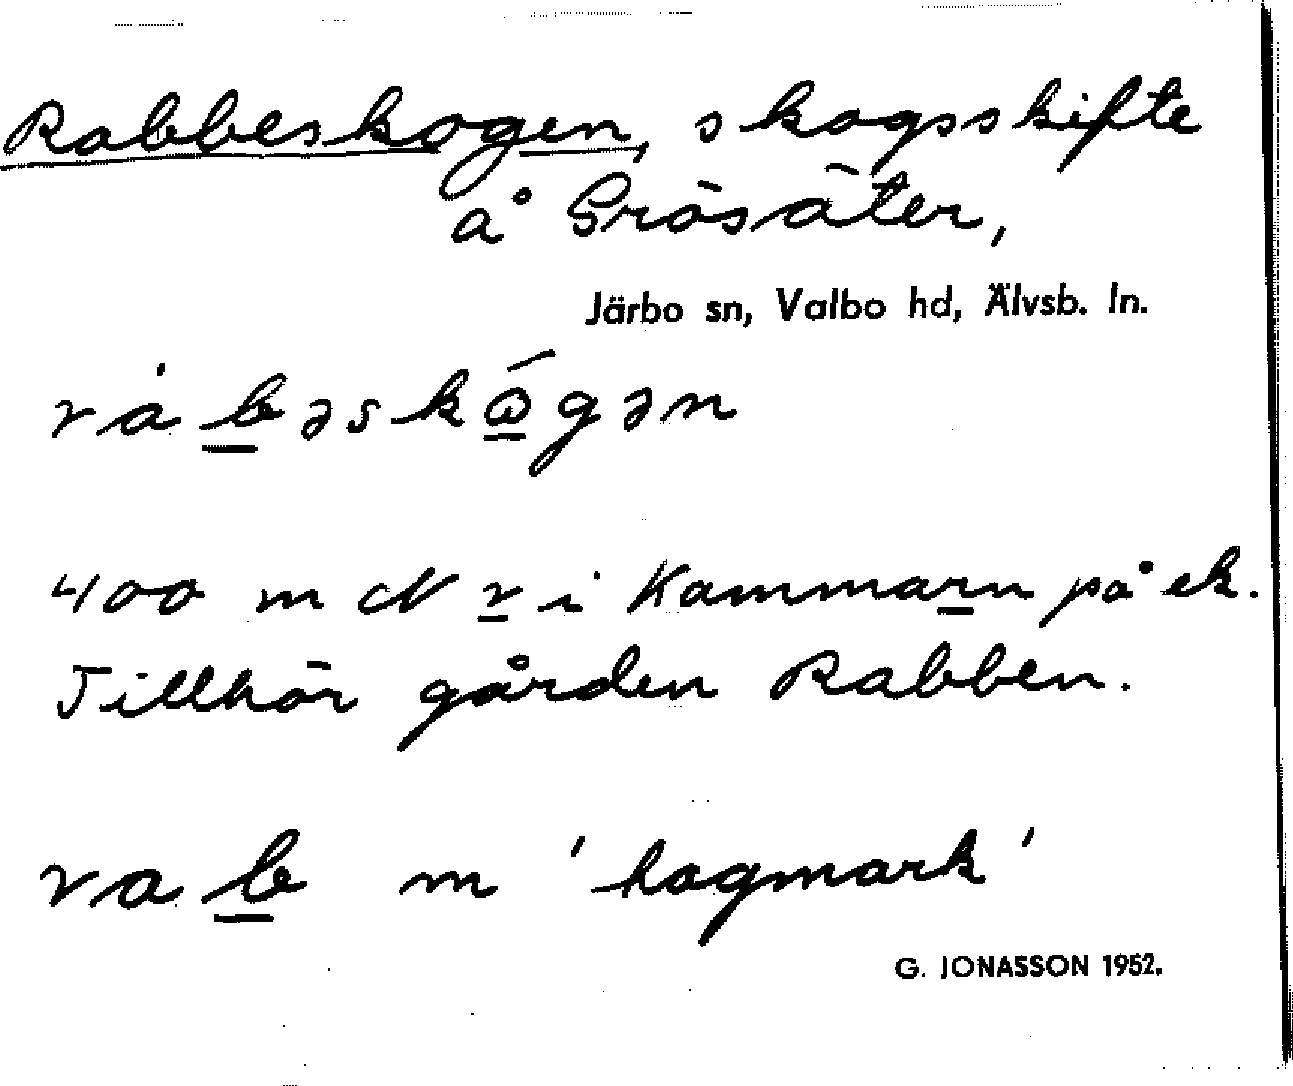 Rabbeskogen, skogsskifte
å Grösäter,
Järbo sn, Valbo hd, Älvsb. ln.
400 m N r i Kammarn på ek.
Tillhör gården Rabben.
rab m 'hagmark'
G. JONASSON 1952.